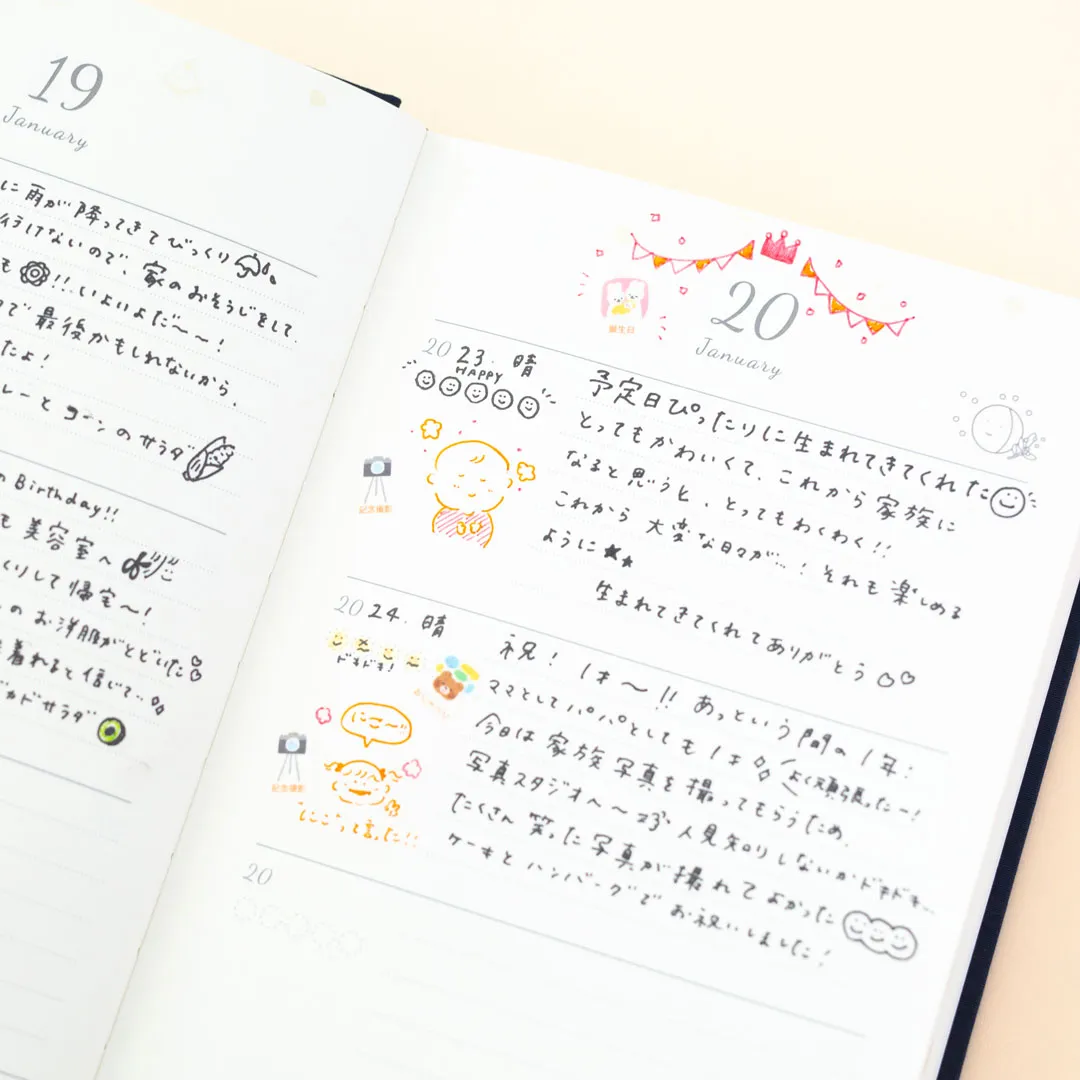 19
January
に雨が降ってきてびっくり
行けないので、家のおそうじをして、
も!!いよいよだ〜〜!
で最後かもしれないから、
たよ!
レーとコーンのサラダ
のBirthday!!
も美容室へ
くりして帰宅〜!
のお洋服がとどいた
着れると信じて…
カドサラダ
20
January
誕生日
2023. 晴
HAPPY
記念撮影
予定日ぴったりに生まれてきてくれた
とってもかわいくて、これから家族に
なると思うと、とってもわくわく!!
これから大変な日々が…!それも楽しめる
ように★★
生まれてきてくれてありがとう
2024. 晴
ドキドキ!
記念撮影
にこ〜っ
"にこ"って言った!!
祝!1才〜!!あっという間の1年!
ママとしてパパとしても1才 よく頑張ったー!
今日は家族写真を撮ってもらうため、
写真スタジオへ〜 人見知りしないかドキドキ…
たくさん笑った写真が撮れてよかった
ケーキとハンバーグでお祝いしました!
20